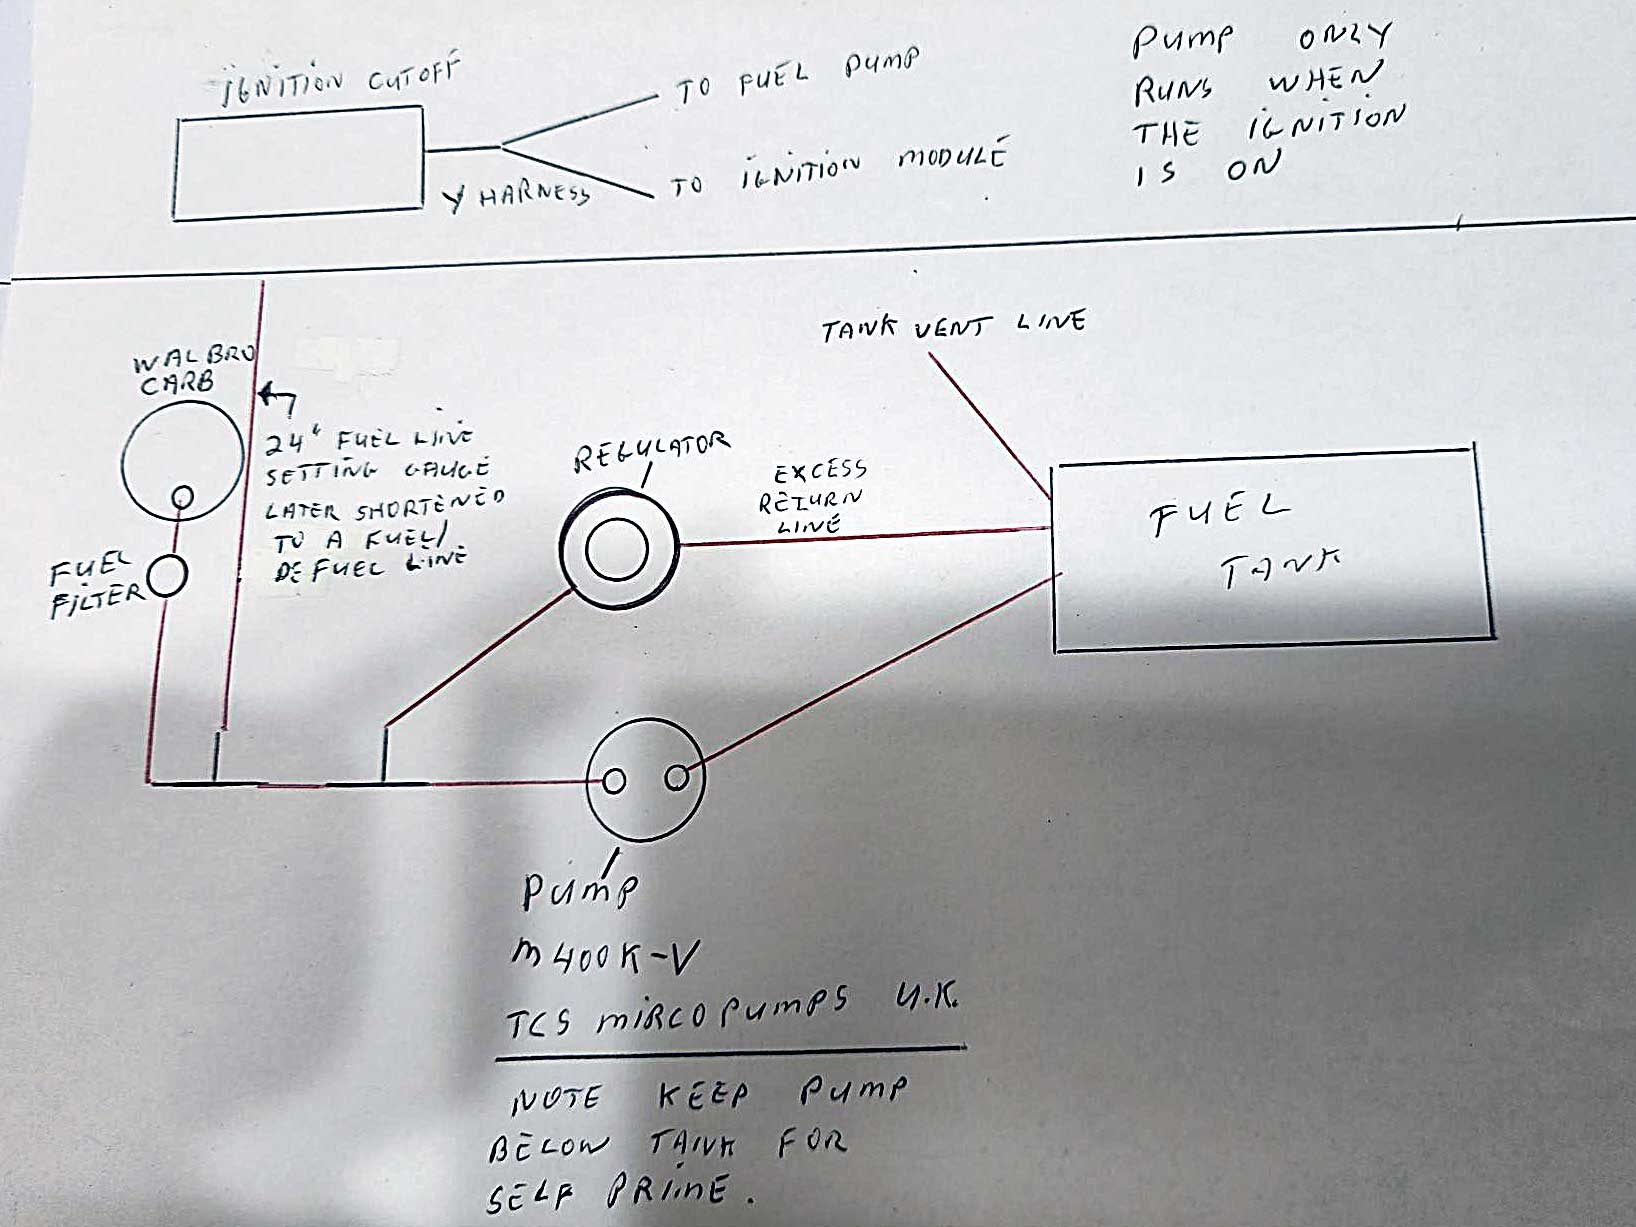 IGNITION CUTOFF
TO FUEL PUMP
Y HARNESS
TO IGNITION MODULE
PUMP ONLY
RUNS WHEN
THE IGNITION
IS ON
TANK VENT LINE
WALBRO
CARB
24" FUEL LINE
SETTING GAUGE
LATER SHORTENED
TO A FUEL/
DEFUEL LINE
FUEL
FILTER
REGULATOR
EXCESS
RETURN
LINE
FUEL
TANK
PUMP
M400K-V
TCS MIRCOPUMPS U.K.
NOTE KEEP PUMP
BELOW TANK FOR
SELF PRIME.